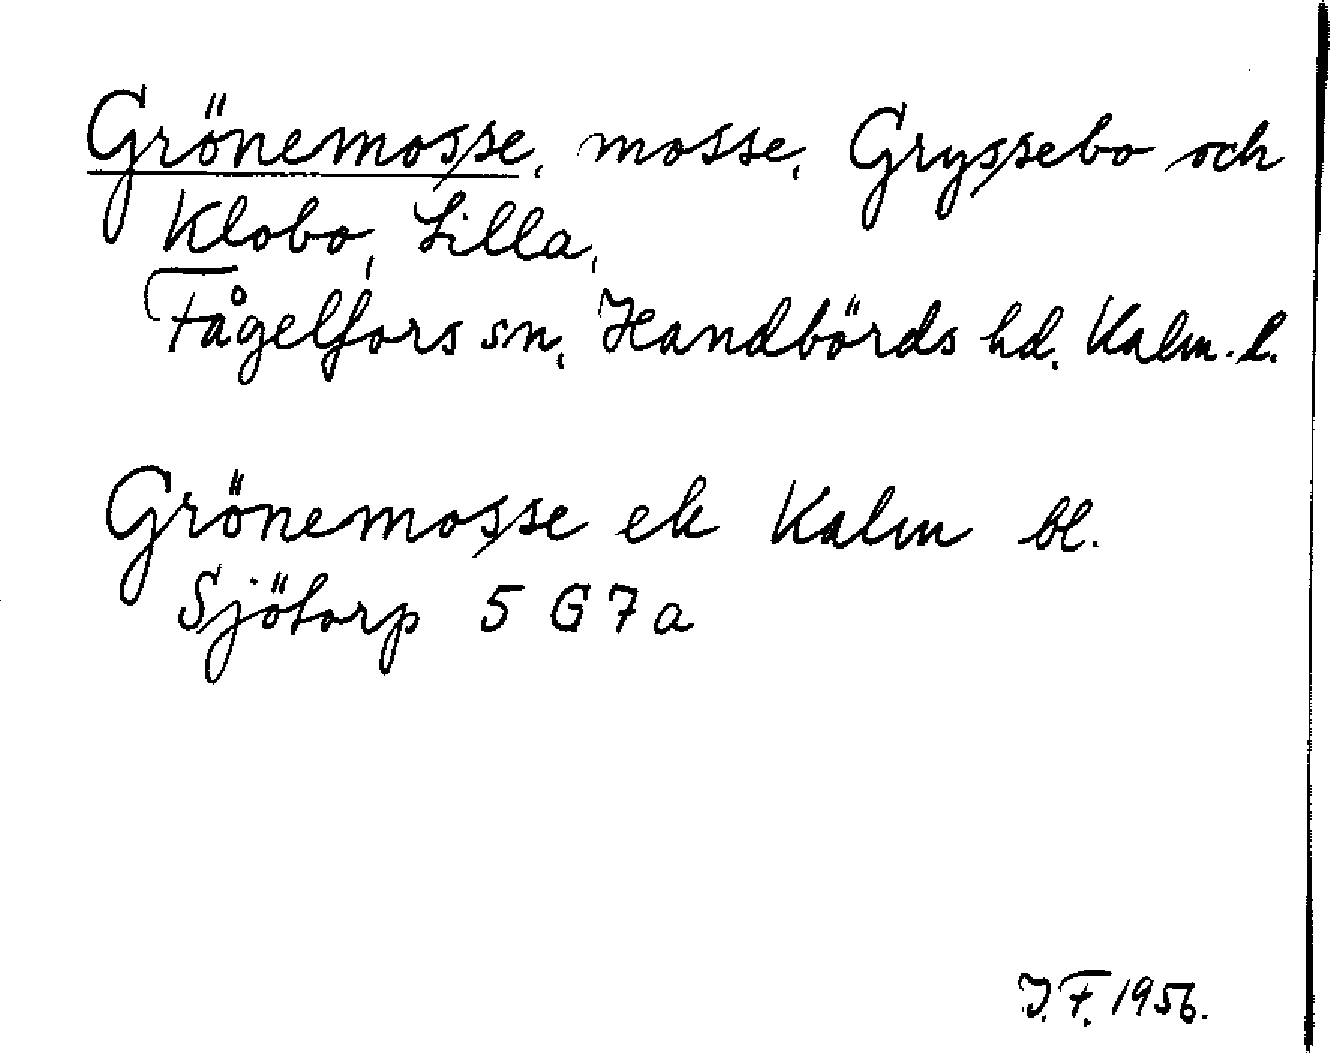 Grönemosse, mosse, Gryssebo och
Klobo, Lilla,
Fågelfors sn, Handbörds hd, Kalm. l.
Grönemosse ek Kalm bl.
Sjötorp 5 G 7 a
J. F. 1956.